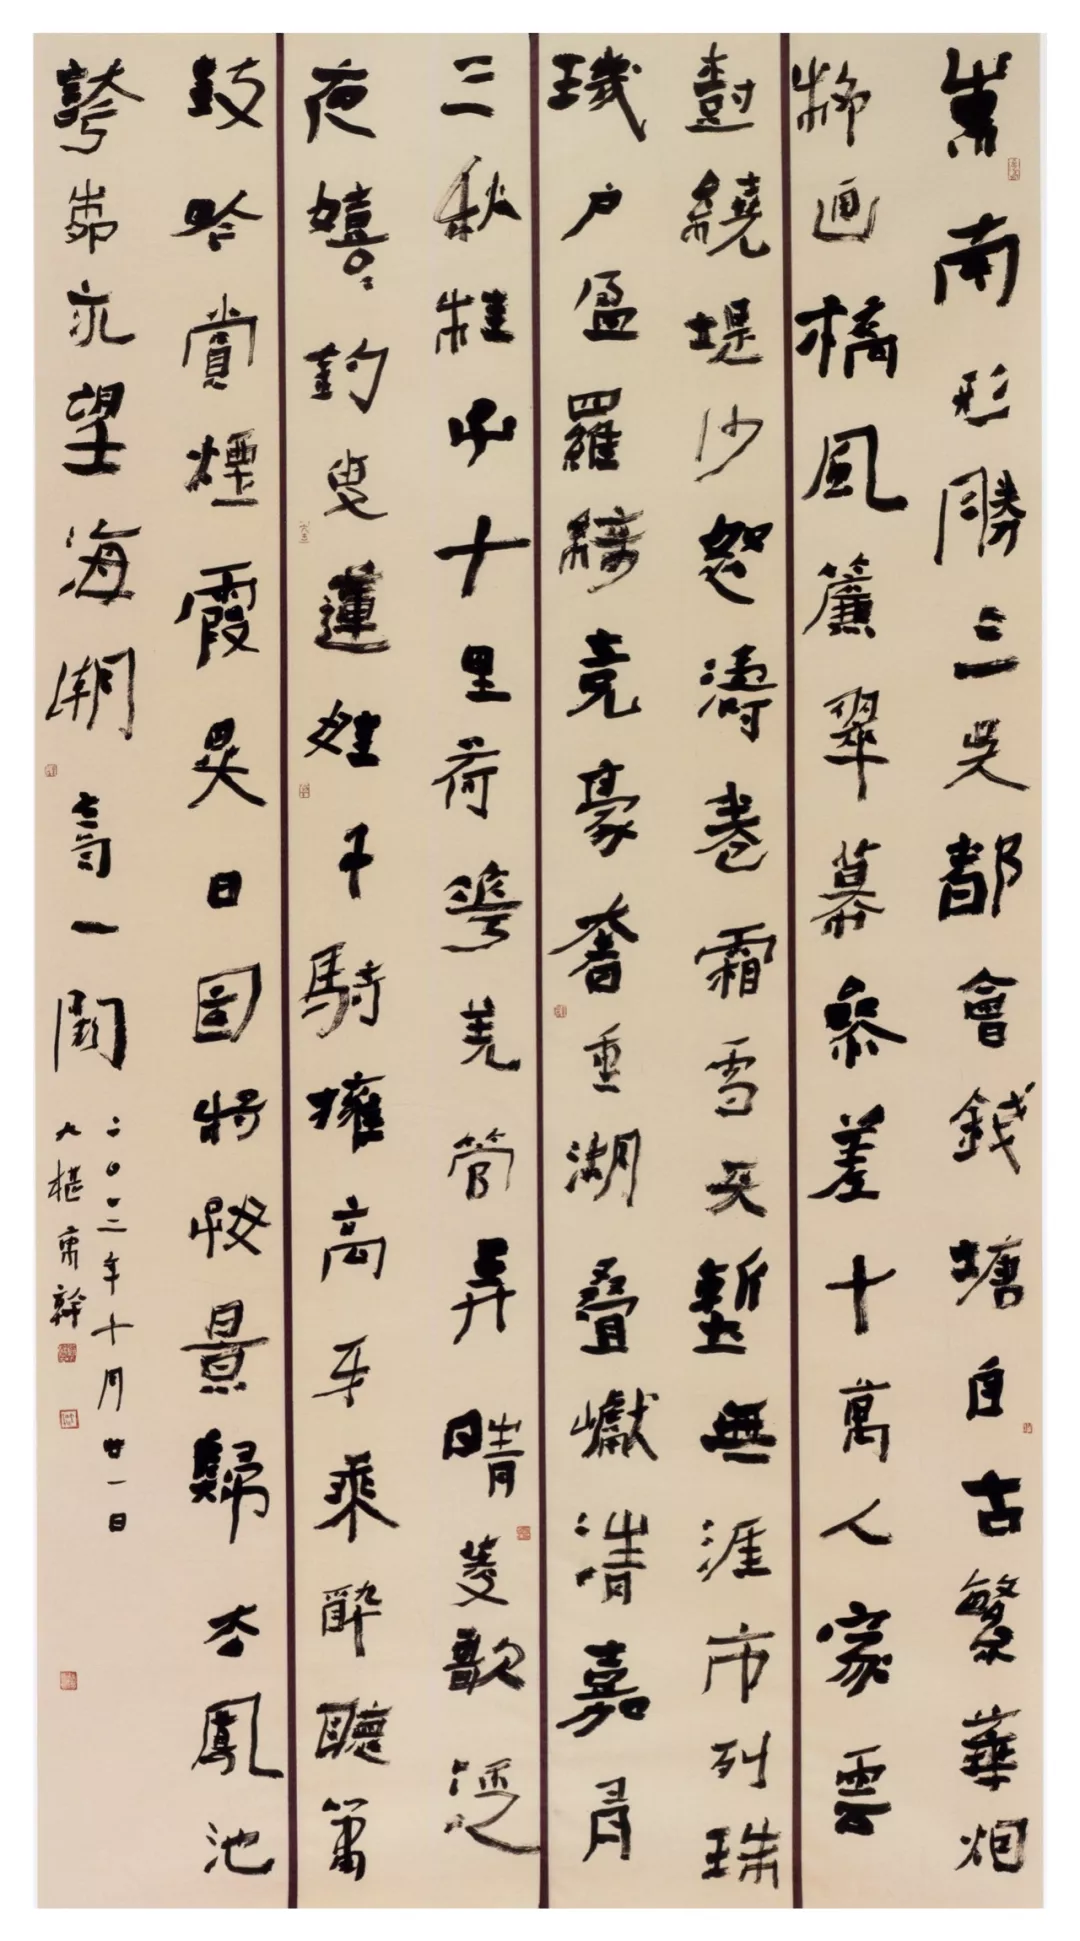 東南形勝三吴都會錢塘自古繁華烟
柳画橋風簾翠幕參差十萬人家雲
樹繞堤沙怒濤卷霜雪天塹無涯市列珠
璣户盈羅綺竞豪奢重湖叠巘清嘉有
三秋桂子十里荷花羌管弄晴菱歌泛
夜嬉嬉釣叟蓮娃千騎擁高牙乘醉聽簫
鼓吟賞煙霞異日图將好景歸去鳳池
誇柳永望海潮一闋
二〇〇二年十月廿一日